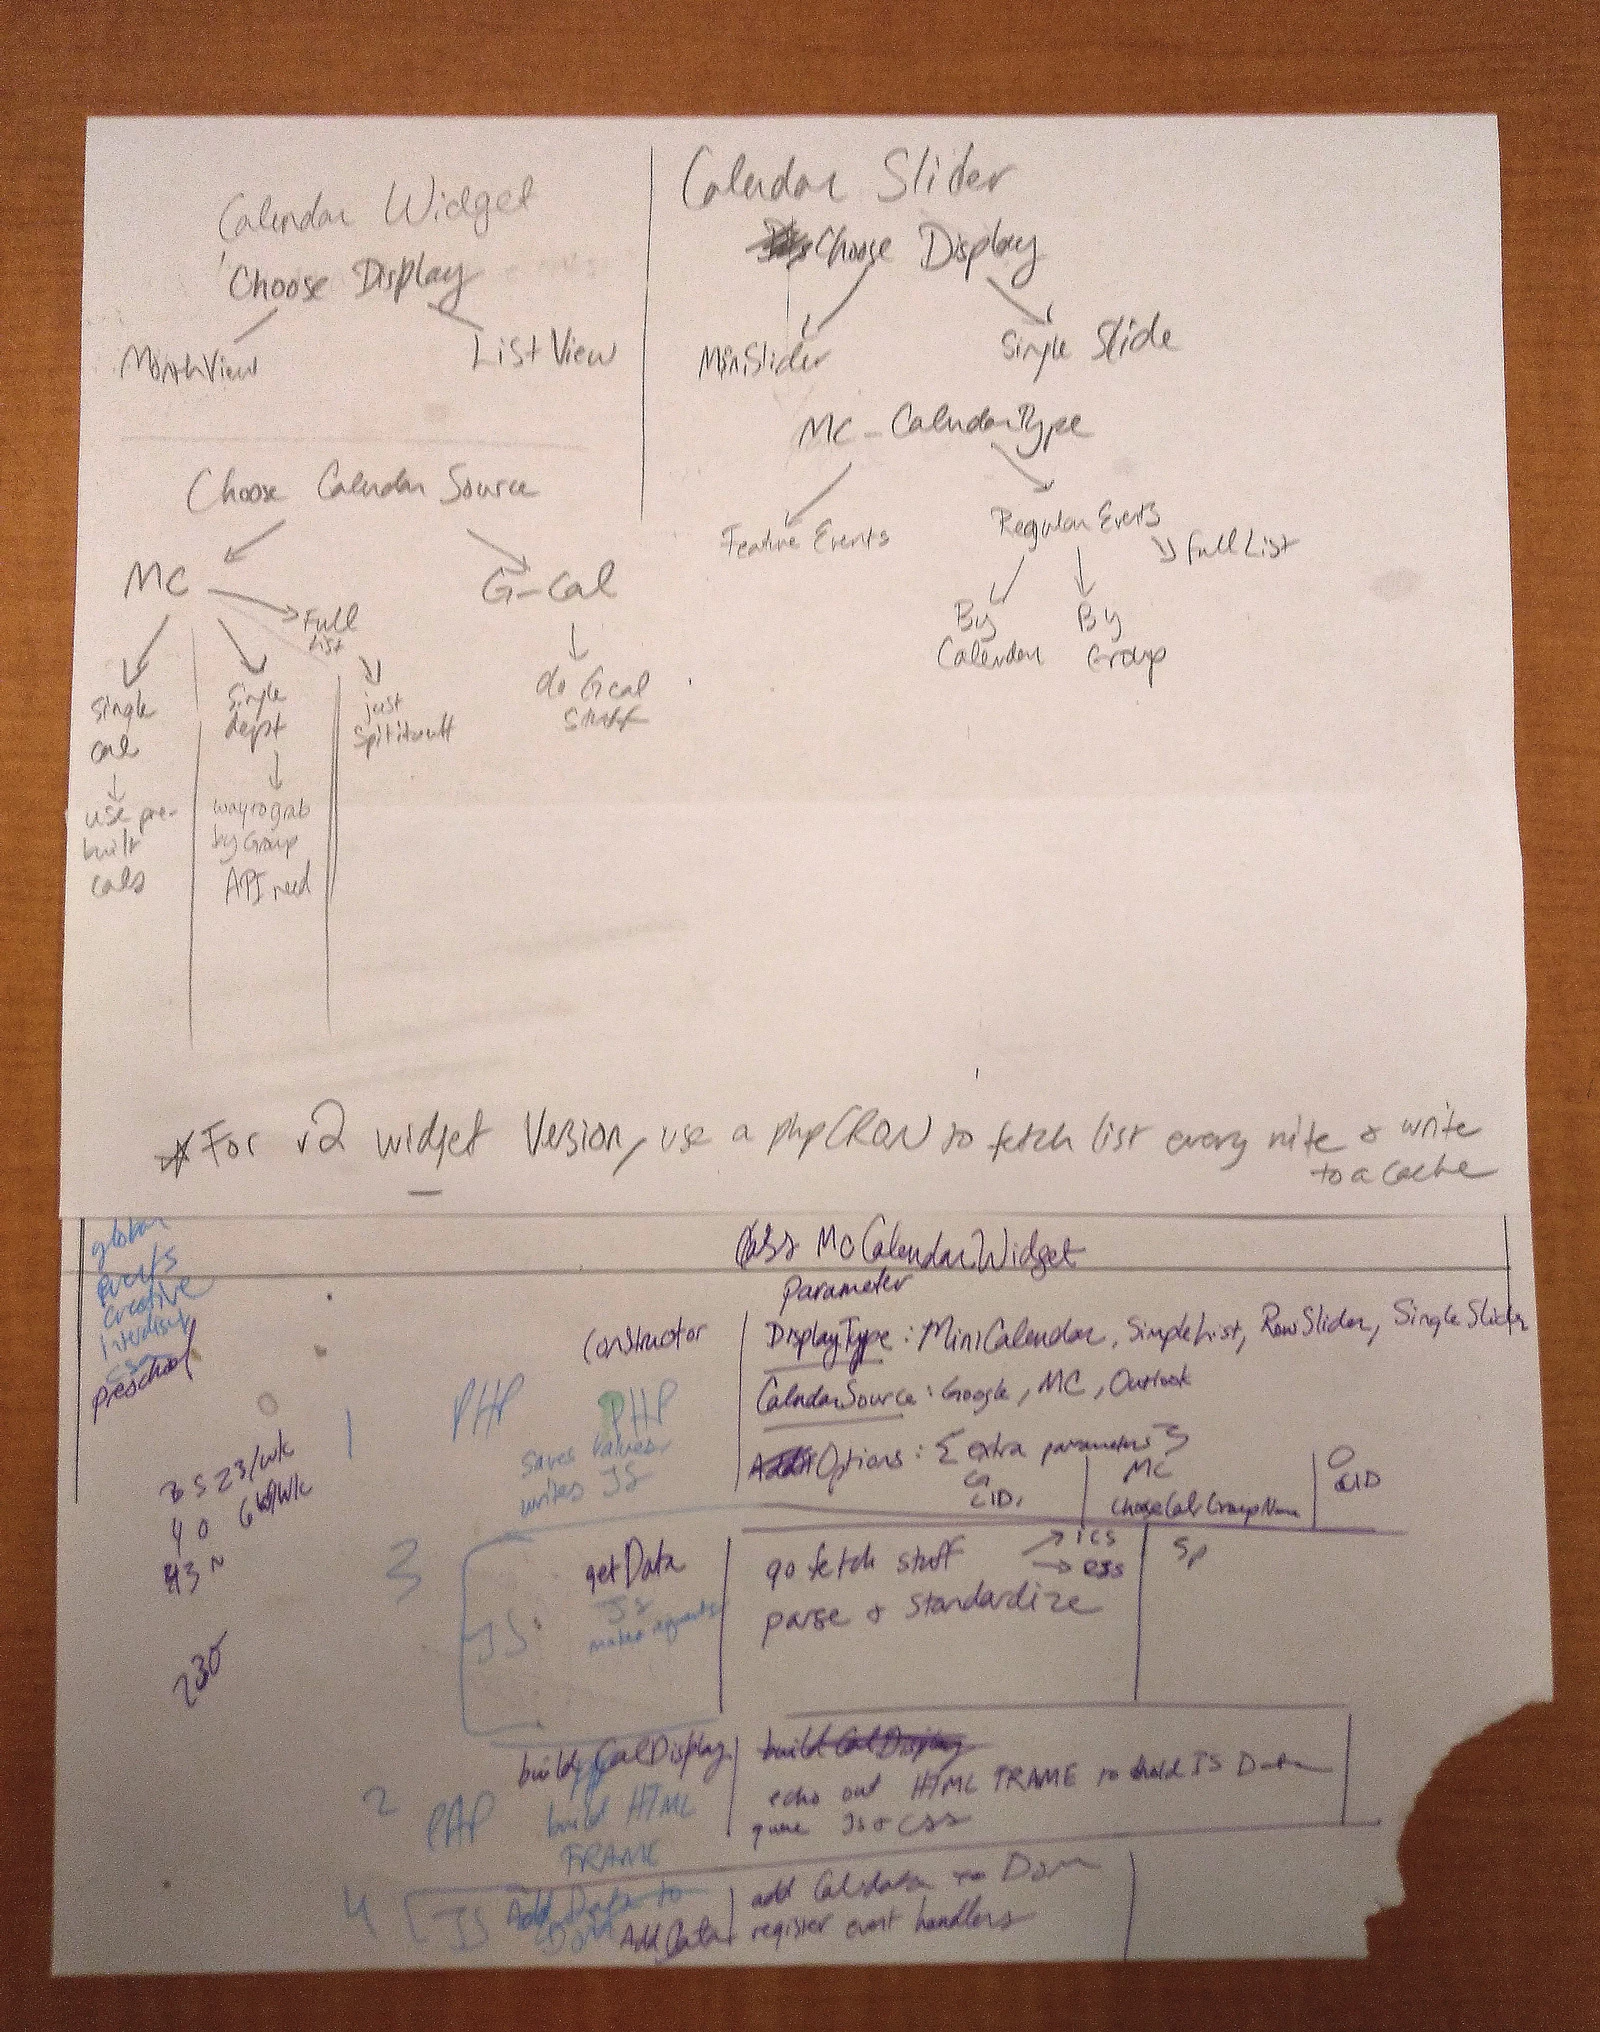 Calendar Widget
Choose Display
MonthView
List View
Choose Calendar Source
MC
G-Cal
Full
List
Single
cal
use pre-
built
cals
Single
dept
way to grab
by Group
API need
just
Spit it out
do Gcal
Stuff
Calendar Slider
Choose Display
MiniSlider
Single Slide
MC-CalendarType
Feature Events
Regular Events
Full List
By
Calendar
By
Group
For v2 widget Version, use a php CRON to fetch list every nite & write
to a cache
global
events
Creative
preschool
Class McCalendarWidget
Parameter
constructor
DisplayType: MiniCalendar, SimpleList, RowSlider, SingleSlider
CalendarSource: Google, MC, Outlook
Options: { extra parameters }
1
PHP
PHP
saves values
writes JS
G
CID,
MC
GroupName
O
CID
3
JS
getData
JS
makes requests
go fetch stuff
ICS
RSS
parse & standardize
2
PHP
build CalDisplay
build HTML
FRAME
build CalDisplay
echo out HTML FRAME to hold JS Data
queue JS & CSS
4
JS
Add Data to
Dom
Add Data
add Cal data to Dom
register event handlers
23/wk
40
230